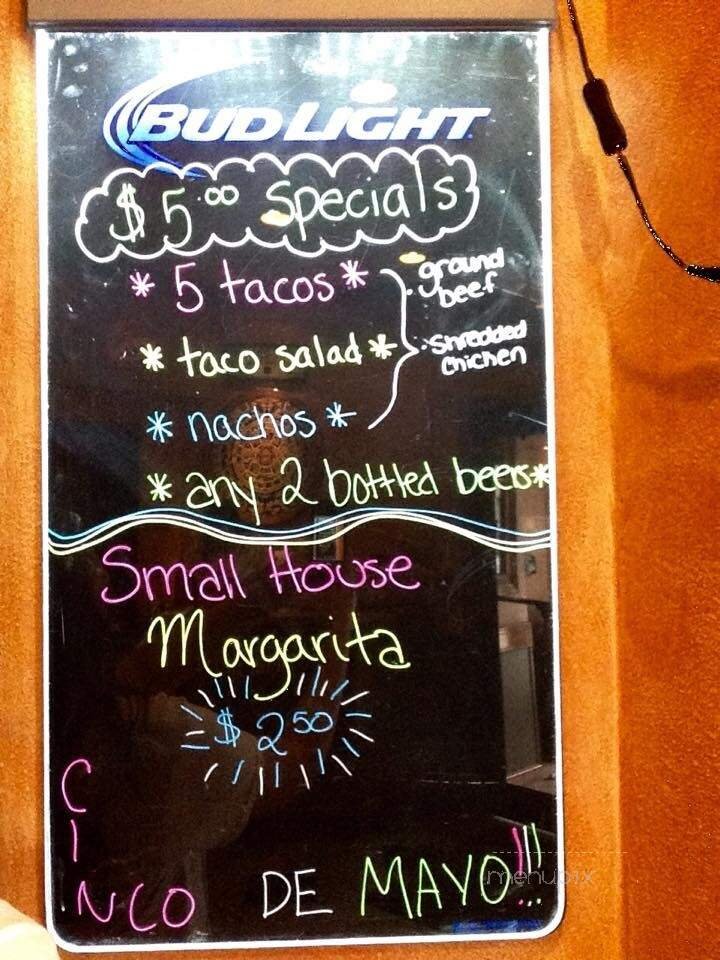 BUD LIGHT
$5.00 Specials
* 5 tacos *
· ground beef
* taco salad *
· Shredded Chicken
* nachos *
* any 2 bottled beers *
Small House
Margarita
$2.50
CINCO DE MAYO!!!
menupix